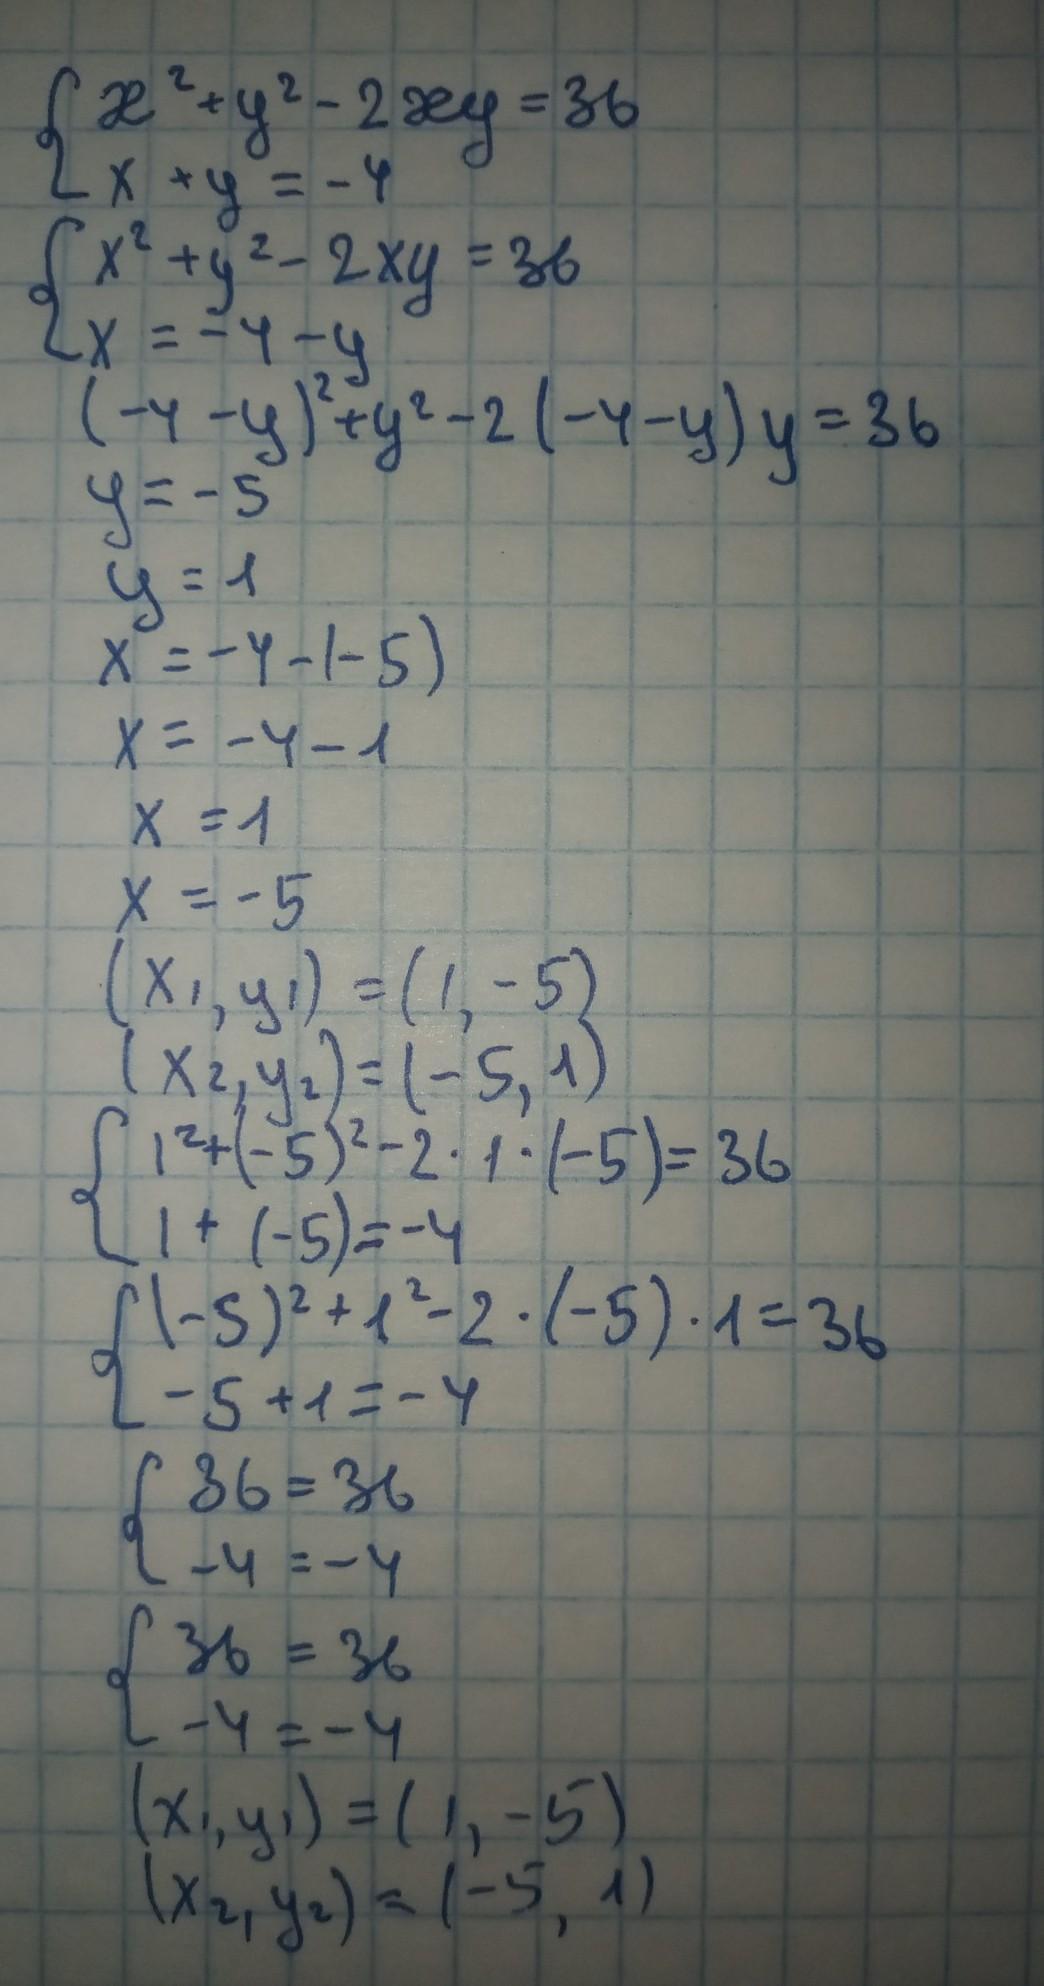 { x² + y² - 2xy = 36
x + y = -4
{ x² + y² - 2xy = 36
x = -4 - y
(-4 - y)² + y² - 2(-4 - y)y = 36
y = -5
y = 1
x = -4 - (-5)
x = -4 - 1
x = 1
x = -5
(x₁, y₁) = (1, -5)
(x₂, y₂) = (-5, 1)
{ 1² + (-5)² - 2 · 1 · (-5) = 36
1 + (-5) = -4
{ (-5)² + 1² - 2 · (-5) · 1 = 36
-5 + 1 = -4
{ 36 = 36
-4 = -4
{ 36 = 36
-4 = -4
(x₁, y₁) = (1, -5)
(x₂, y₂) = (-5, 1)